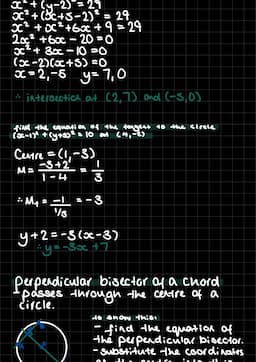 x² + (y-2)² = 29
x² + (x+5-2)² = 29
x² + x² +6x + 9 = 29
2x² +6x - 20 = 0
x² + 3x - 10 = 0
(x-2)(x+5) = 0
x = 2, -5   y = 7, 0
∴ intersection at (2,7) and (-5,0)
find the equation of the tangent to the circle
(x-1)² + (y+3)² = 10 at (4,-2)
Centre = (1, -3)
M = (-3+2)/(1-4) = 1/3
∴ M₁ = -1/(1/3) = -3
y+2 = -3(x-3)
∴ y = -3x +7
perpendicular bisector of a chord
-passes through the centre of a
circle.
to show this:
- find the equation of
the perpendicular bisector.
- substitute the coordinates